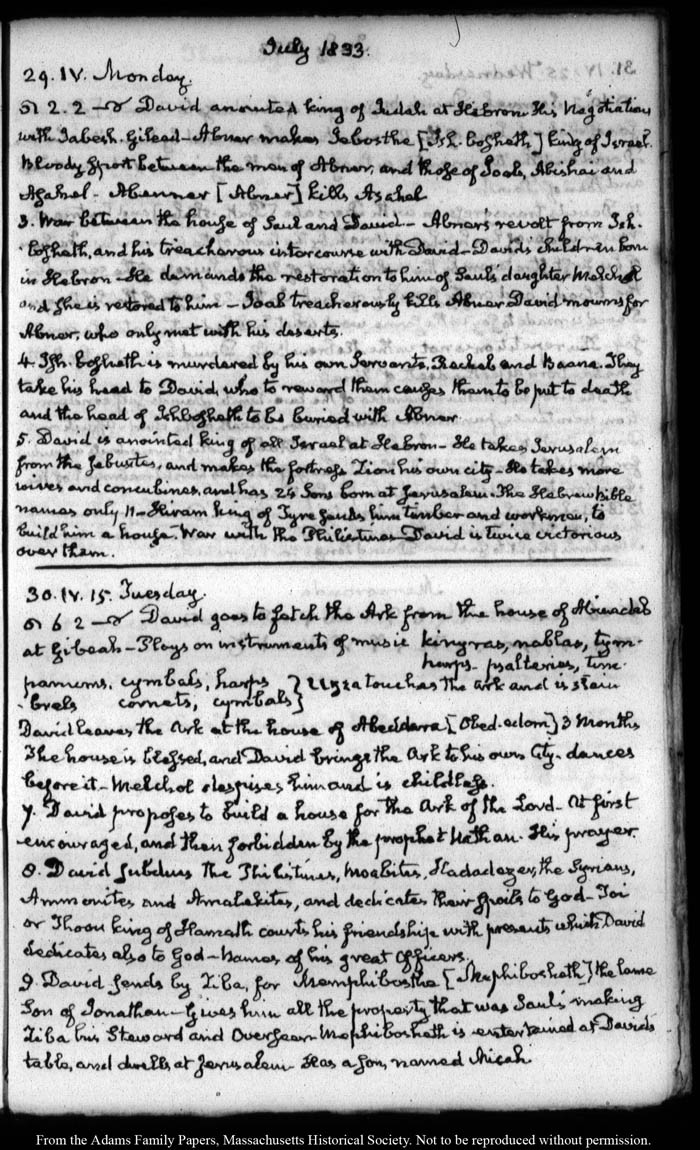 July 1833.
29. IV. Monday.
2. 2 — David anointed king of Judah at Hebron. His Negotiation
with Jabesh. Gilead — Abner makes Jebosthe [Ish. bosheth] king of Israel.
Bloody sport between the men of Abner, and those of Joab, Abishai and
Asahel — Abenner [Abner] kills Asahel
3. War between the house of Saul and David — Abner's revolt from Ish.
bosheth, and his treacherous intercourse with David — David's children born
in Hebron — He demands the restoration to him of Saul's daughter Melchol
and she is restored to him — Joab treacherously kills Abner David mourns for
Abner, who only met with his deserts.
4. Ish. bosheth is murdered by his own Servants, Rachab and Baana. They
take his head to David, who to reward them causes them to be put to death
and the head of Ishbosheth to be buried with Abner
5. David is anointed king of all Israel at Hebron — He takes Jerusalem
from the Jebusites, and makes the fortress Zion his own city — He takes more
wives and concubines, and has 24 Sons born at Jerusalem. The Hebrew bible
names only 11 — Hiram king of Tyre sends him timber and workmen, to
build him a house. War with the Philistines David is twice victorious
over them.
30. IV. 15. Tuesday.
6 2 — David goes to fetch the Ark from the house of
at Gibeah — Plays on instruments of music kinyras, nablas, tym-
harps psalteries, tim-
panums. cymbals, harps } Uzza touches the ark and is slain
brels cornets, cymbals }
David leaves the Ark at the house of Abeddara [Obed. edom] 3 Months
The house is blessed, and David brings the Ark to his own City. dances
before it — Melchol despises him and is childless.
7. David proposes to build a house for the Ark of the Lord — at first
encouraged, and then forbidden by the prophet Nathan. His prayer.
8. David subdues the Philistines, Moabites, Hadadezer, the Syrians,
Ammonites and Amalekites, and dedicates their spoils to God — Toi
or Thoou king of Hamath courts his friendship with presents which David
dedicates also to God — Names of his great Officers.
9. David sends by Ziba, for Memphibosthe [Mephibosheth] the lame
Son of Jonathan — Gives him all the property that was Saul's making
Ziba his Steward and Overseer. Mephibosheth is entertained at David's
table, and dwells at Jerusalem — Has a son, named Micah
From the Adams Family Papers, Massachusetts Historical Society. Not to be reproduced without permission.